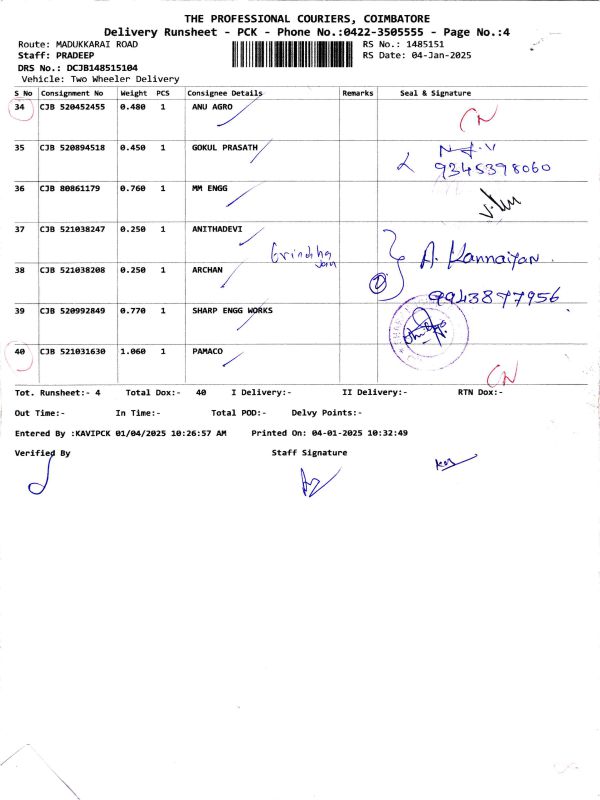 THE PROFESSIONAL COURIERS, COIMBATORE
Delivery Runsheet - PCK - Phone No.:0422-3505555 - Page No.:4
Route: MADUKKARAI ROAD RS No.: 1485151
Staff: PRADEEP RS Date: 04-Jan-2025
DRS No.: DCJB148515104
Vehicle: Two Wheeler Delivery
S No Consignment No Weight PCS Consignee Details Remarks Seal & Signature
34 CJB 520452455 0.480 1 ANU AGRO CN
35 CJB 520894518 0.450 1 GOKUL PRASATH
9345398060
36 CJB 80861179 0.760 1 MM ENGG
37 CJB 521038247 0.250 1 ANITHADEVI
A. Kannaiyan
38 CJB 521038208 0.250 1 ARCHAN 2
9943877956
39 CJB 520992849 0.770 1 SHARP ENGG WORKS
40 CJB 521031630 1.060 1 PAMACO CN
Tot. Runsheet:- 4 Total Dox:- 40 I Delivery:- II Delivery:- RTN Dox:-
Out Time:- In Time:- Total POD:- Delvy Points:-
Entered By :KAVIPCK 01/04/2025 10:26:57 AM Printed On: 04-01-2025 10:32:49
Verified By Staff Signature